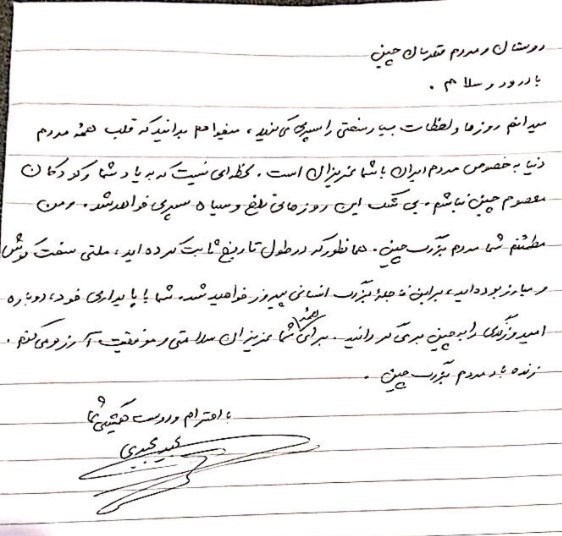 دوستان و مردم قهرمان چین
با درود و سلام .
میدانم روزها و لحظات بسیار سختی را سپری می‌کنید، میخواهم بدانید که قلب همهٔ مردم
دنیا به خصوص مردم ایران با شما عزیزان است . لحظه‌ای نیست که به یاد شما و کودکان
معصوم چین نباشم . بی شک این روزهای تلخ و سیاه سپری خواهد شد . و من
مطمئنم شما مردم بزرگ چین . همانطور که در طول تاریخ ثابت کرده اید ، ملتی سخت کوش
و مبارز بوده‌اید ، بر این فاجعهٔ بزرگ انسانی پیروز خواهید شد . شما با پایداری خود ، دوباره
امید و زندگی را به چین بر می گردانید . برای همهٔ شما عزیزان سلامتی و موفقیت آرزو می کنم .
زنده باد مردم بزرگ چین .
با احترام و دوست همیشگی شما
مجید مجیدی